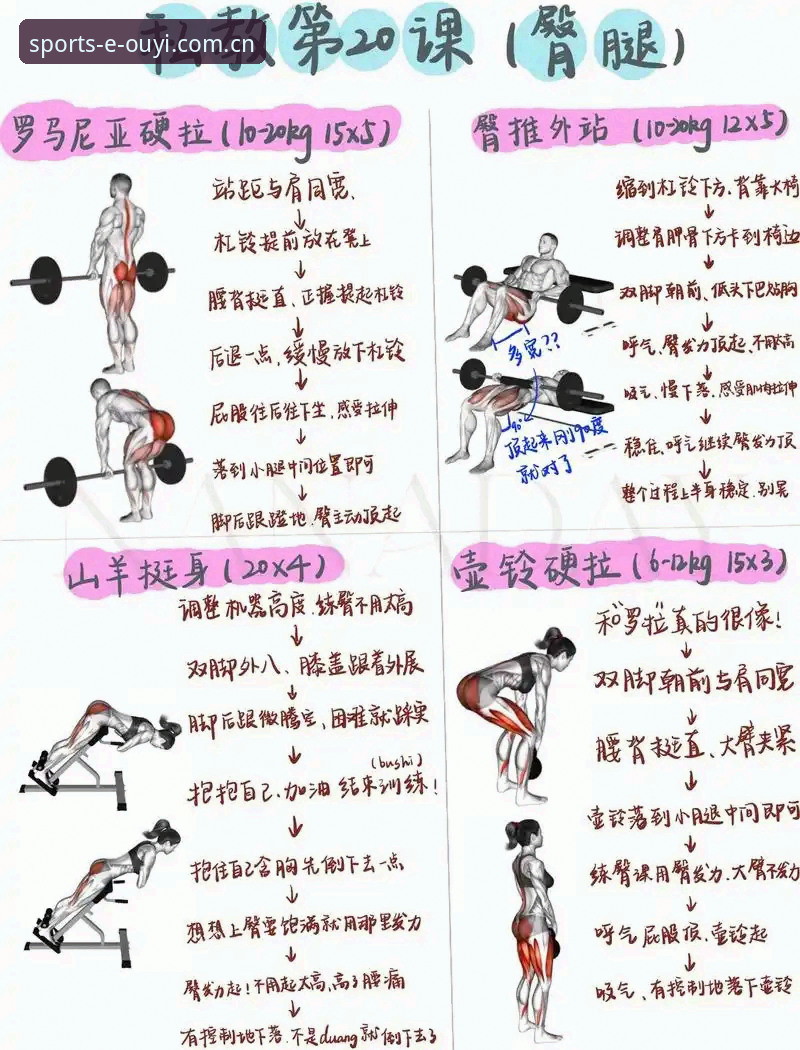 sports-e-ouyi.com.cn
私教第20课(臀腿)
罗马尼亚硬拉(10-20kg 15x5)
站距与肩同宽、
杠铃提前放在凳上
腰背挺直、正握提起杠铃
后退一点,缓慢放下杠铃
屁股往后往下坐,感受拉伸
落到小腿中间位置即可
脚后跟蹬地、臀主动顶起
臀推外站 (10-20kg 12x5)
缩到杠铃下方、背靠大椅
调整肩胛骨下方卡到椅边
双脚朝前、低头下巴贴胸
呼气、臀发力顶起、不用太高
吸气、慢下落、感受肌肉拉伸
稳住、呼气继续臀发力顶
整个过程上半身稳定、别晃
多宽??
90°
顶起来刚90度
就对了
山羊挺身(20x4)
调整机器高度、练臀不用太高
双脚外八、膝盖跟着外展
脚后跟微腾空、困难就踩实
(bushi)
抱抱自己、加油 结束训练!
抱住自己含胸先倒下去一点
想想上臀要饱满就用那里发力
臀发力起!不用起太高,高了腰痛
有控制地下落、不是duang就倒下去了
壶铃硬拉(6-12kg 15x3)
和"罗拉"真的很像!
双脚朝前与肩同宽
腰背挺直、大臂夹紧
壶铃落到小腿中间即可
练臀课用臀发力、大臂不发力
呼气屁股顶、壶铃起
吸气、有控制地落下壶铃